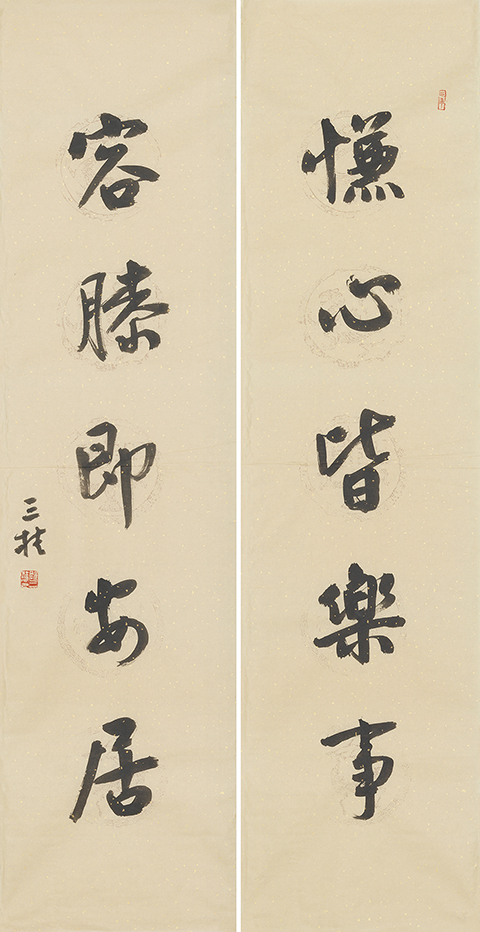 慊心皆樂事
容膝即安居
三